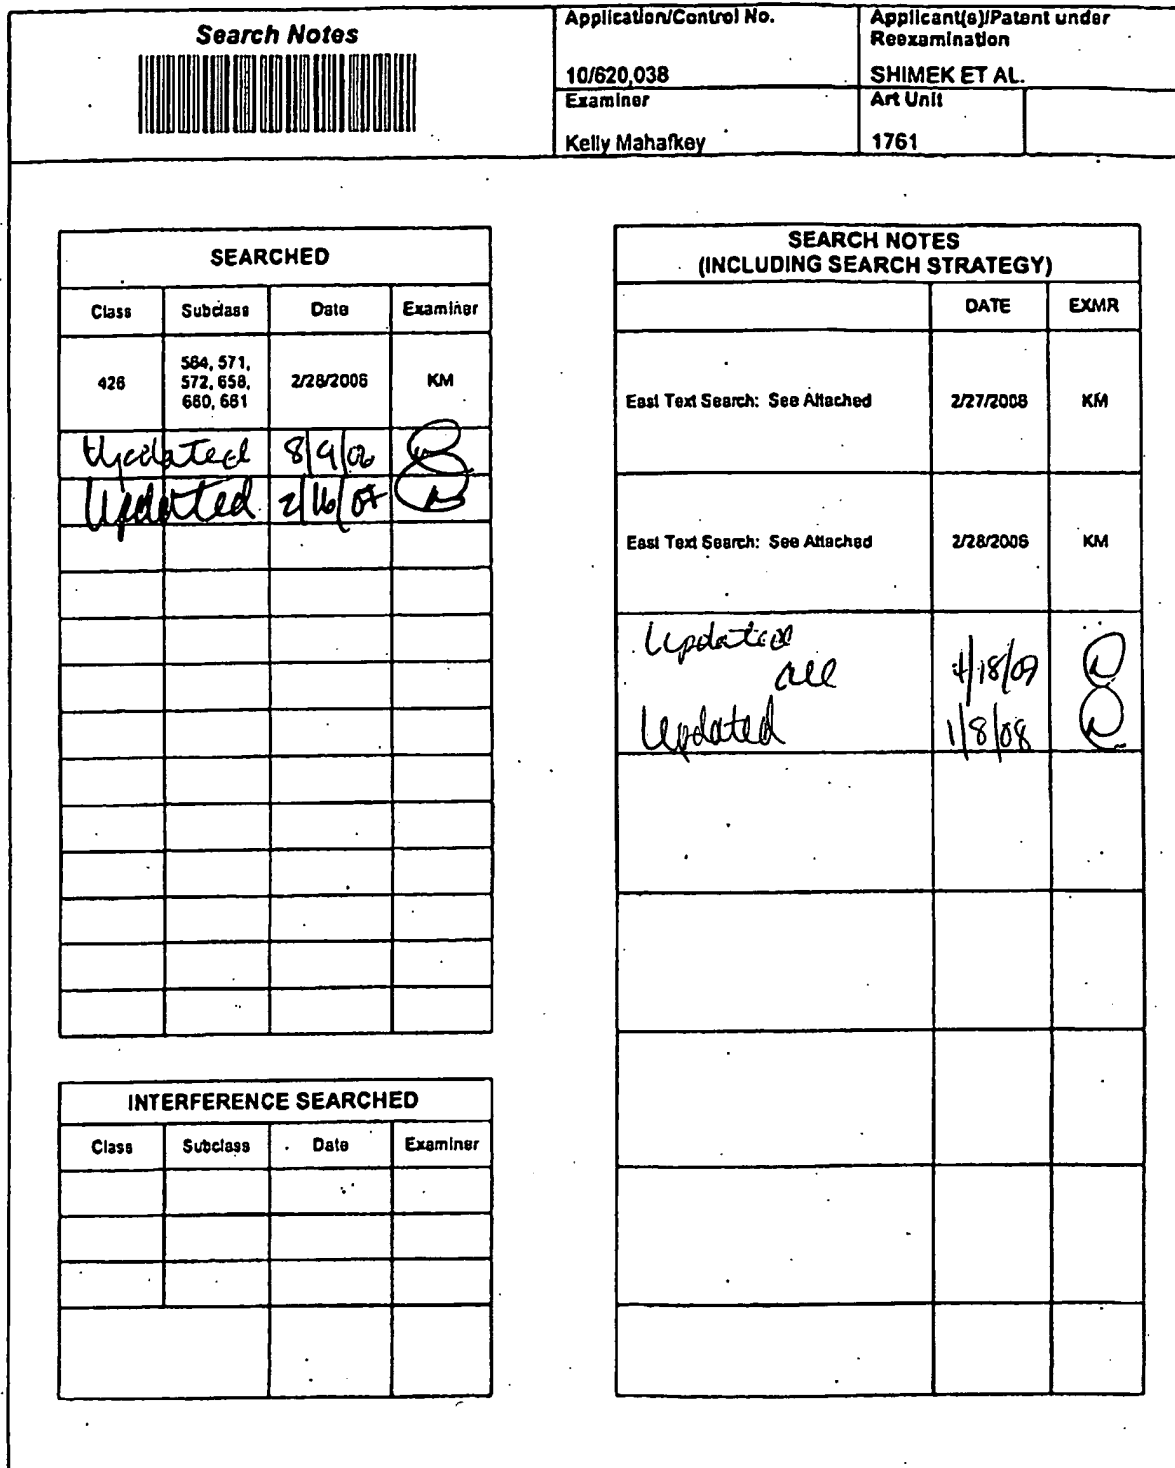 Search Notes
Application/Control No.
10/620,038
Applicant(s)/Patent under
Reexamination
SHIMEK ET AL.
Examiner
Kelly Mahafkey
Art Unit
1761
SEARCHED
Class Subclass Date Examiner
426 564, 571, 2/28/2006 KM
572, 658,
660, 661
Updated 8/9/06
Updated 2/16/07
INTERFERENCE SEARCHED
Class Subclass Date Examiner
SEARCH NOTES
(INCLUDING SEARCH STRATEGY)
DATE EXMR
East Text Search: See Attached 2/27/2006 KM
East Text Search: See Attached 2/28/2006 KM
Updated
all 4/18/07
Updated 1/8/08